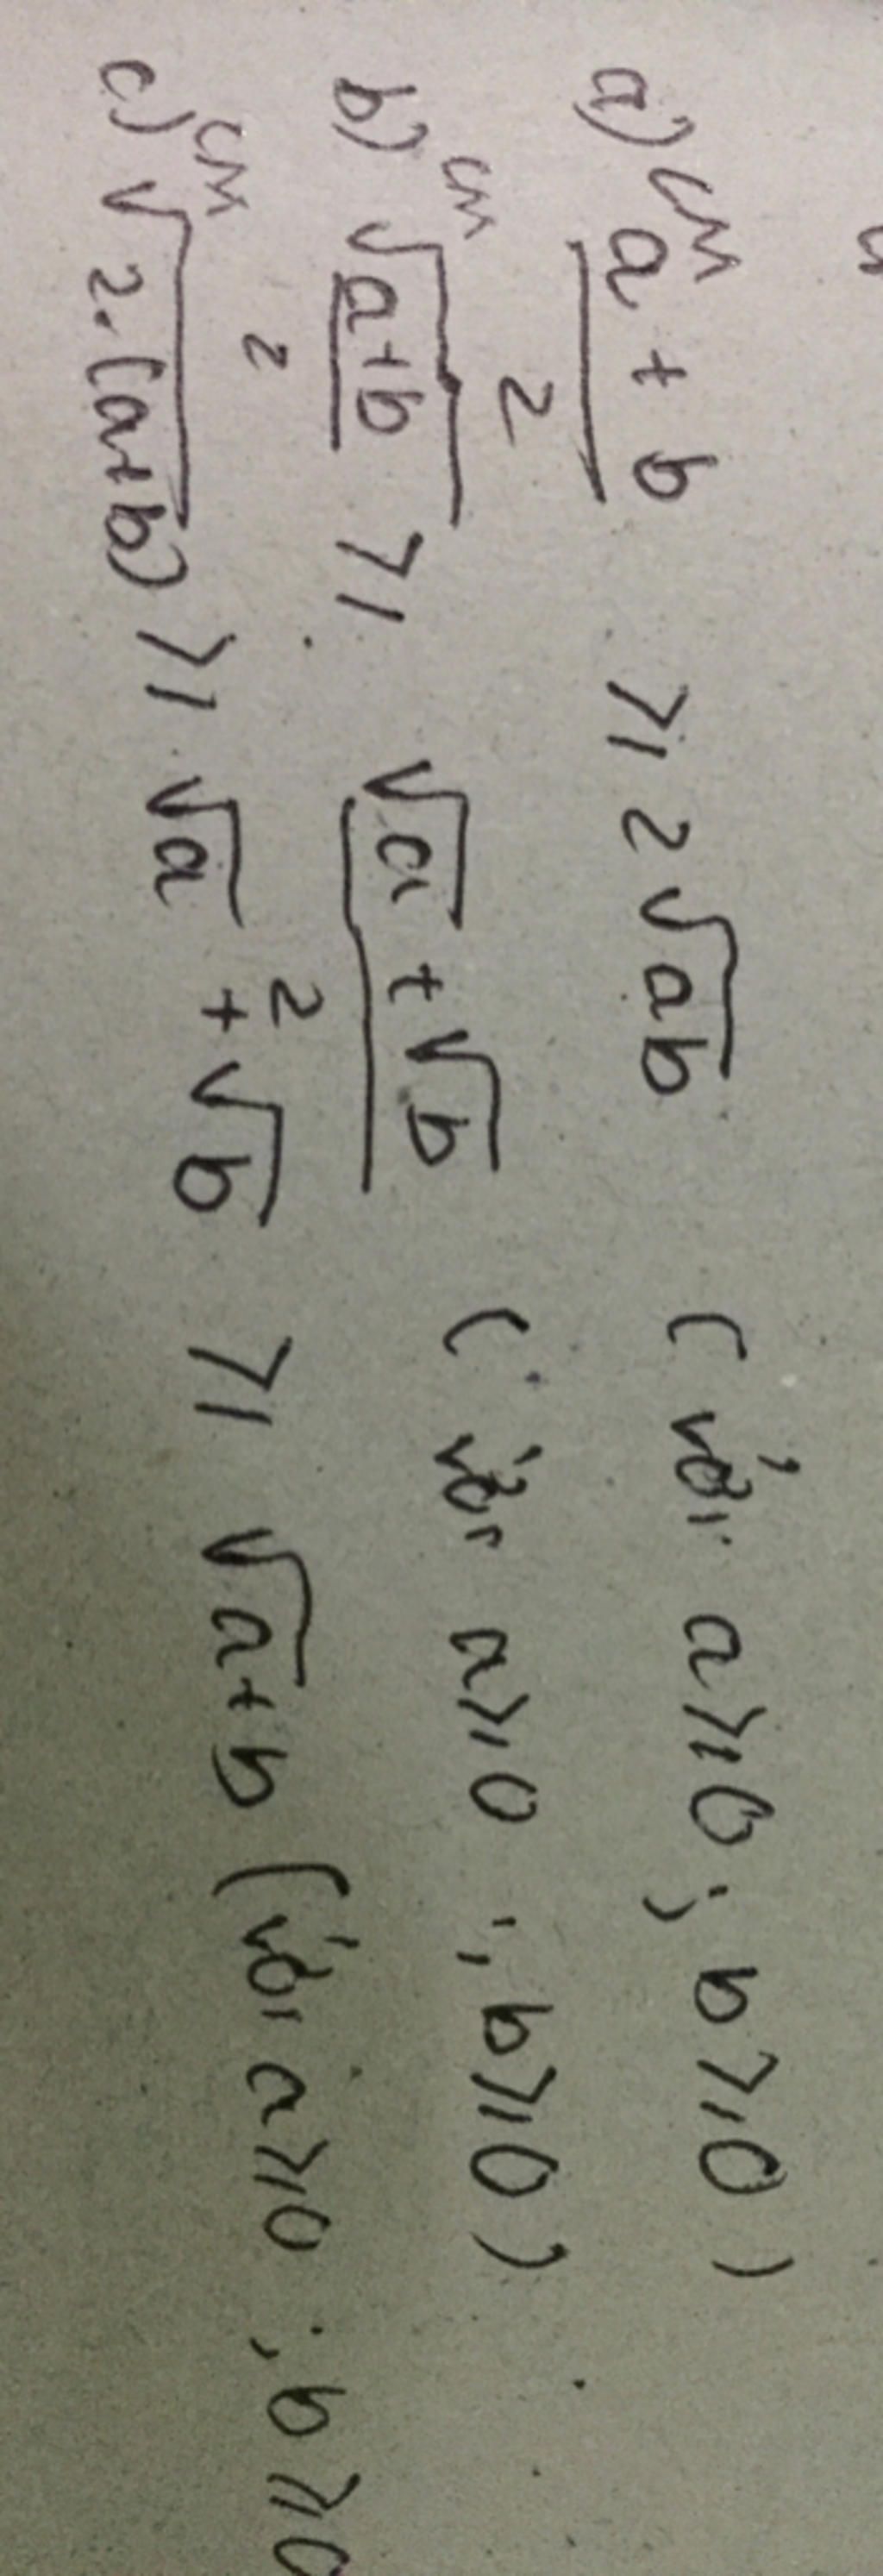 a) CM (a + b)/2 ⩾ 2√ab (với a ⩾ 0; b ⩾ 0)
b) CM √((a+b)/2) ⩾ (√a + √b)/2 (với a ⩾ 0; b ⩾ 0)
c) CM √2.(a+b) ⩾ √a + √b ⩾ √a+b (với a ⩾ 0; b ⩾ 0